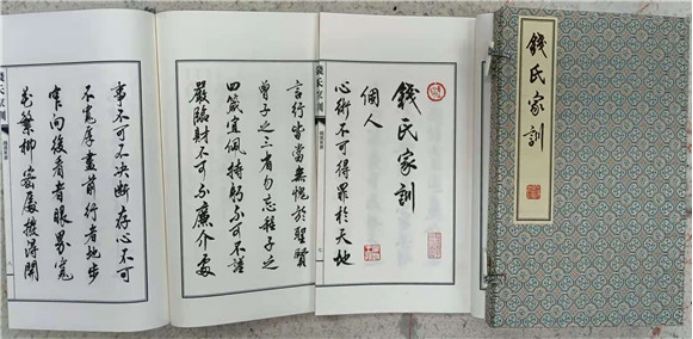 錢氏家訓
錢氏家訓
個人
心術不可得罪於天地
言行皆當無愧於聖賢
曾子之三省勿忘程子之
四箴宜佩持躬不可不謹
嚴臨財不可不廉介處
事不可不決斷存心不可
不寬厚盡前行者地步
窄向後看者眼界寬
花繁柳密處撥得開
錢氏家訓
七
錢氏家訓
八